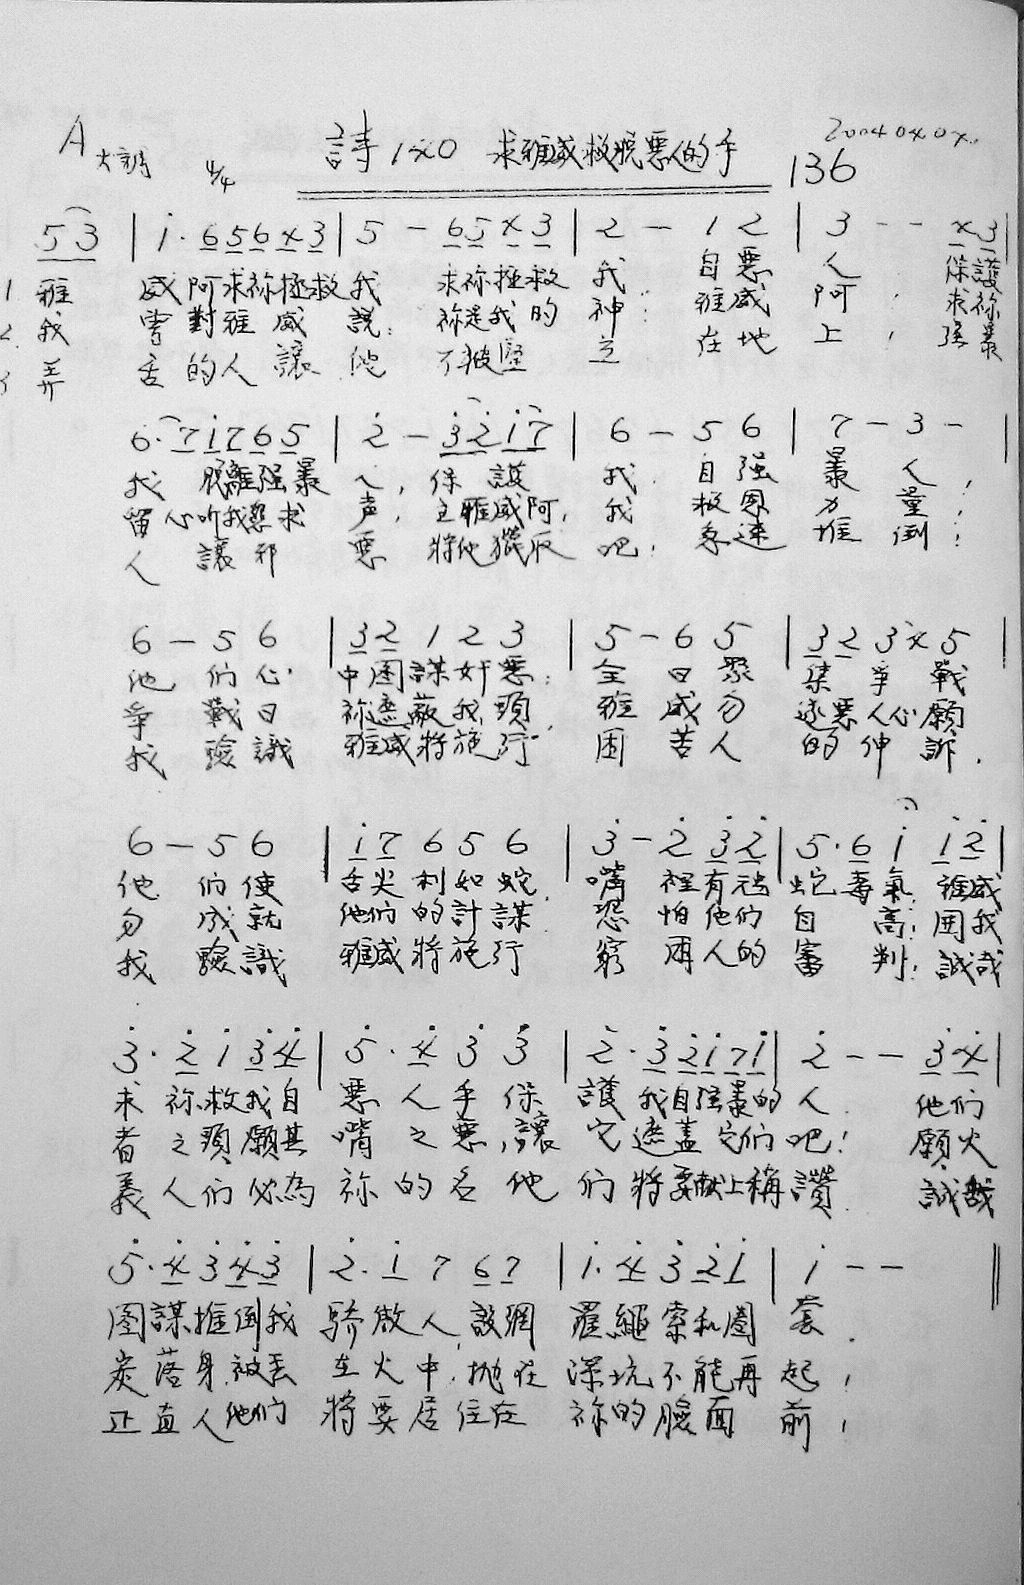 A大調 4/4 詩140 求雅威救脫惡人的手 136 20040404
5 3 | i · 6 5 6 4 3 | 5 - 6 5 4 3 | 2 - 1 2 | 3 - - 4 3 |
1 雅 威阿求祢拯救我 求祢拯救 我 自惡 人 保護
2. 我 曾對雅威 說: 祢是我的 神: 雅威 阿, 求祢
3 弄 舌的人讓 他 不被堅 立 在地 上, 强暴
6 · 7 i 7 6 5 | 2 - 3 2 i 7 | 6 - 5 6 | 7 - 3 - |
我 脫離强暴 人, 保 護 我. 自强 暴 人,
留心听我懇求 声, 主雅威阿, 我 救恩 力 量,
人 讓邪 惡 將他獵取 吧! 急速 推 倒!
6 - 5 6 | 3 2 1 2 3 | 5 - 6 5 | 3 2 3 4 5 |
他 們心 中圖謀奸惡: 全 日聚 集 爭 戰
爭 戰日 祢遮蔽我頭, 雅 威勿 逐惡人心願
我 識 雅威將施行 困 苦人 的 伸 訴.
6 - 5 6 | i 7 6 5 6 | 3 - 2 3 2 | 5 · 6 i i 2 |
他 們使 舌尖利如蛇, 嘴 裡有 蛇毒氣. 雅威
勿 成就 他們的計謀 恐 怕他們 自 高! 圍我
我 識 雅威將施行 窮 人的 審 判! 誠哉
3 · 2 i 3 4 | 5 · 4 3 3 | 2 · 3 2 i 7 i | 2 - - 3 4 |
求祢救我自 惡人手保 護 我自强暴的人. 他們
者之頭願其 嘴之惡,讓 它遮蓋它們吧! 願火
義人們必為 祢的名他 們將要献上稱讚 誠哉
5 · 4 3 4 3 | 2 · i 7 6 7 | i · 4 3 2 i | i - - ‖
圖謀推倒我 骄傲人設網 羅繩索和圈 套.
炭落身被丟 在火中,抛在 深坑不能再 起,
正直人他們 將要居住在 祢的臉面 前,